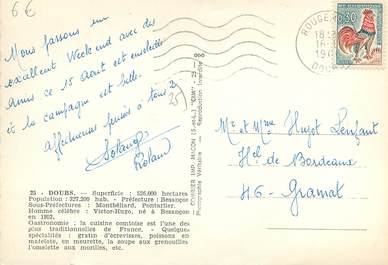 6€
Nous passons un
excellent Week end avec des
amis ce 15 Août est ensoleillé
et la campagne est belle.
Affectueuses pensées à tous 2
Solange
Roland
25
25 - DOUBS. - Superficie : 526.000 hectares
Population : 327.200 hab. - Préfecture : Besançon
Sous-Préfectures : Montbéliard, Pontarlier.
Homme célèbre : Victor-Hugo, né à Besançon
en 1802.
Gastronomie : la cuisine comtoise est l'une des
plus traditionnelles de France. - Quelques
spécialités : gratin d'écrevisses, poissons en
matelote, en meurette, la soupe aux grenouilles
l'omelette aux morilles, etc.
COMBIER IMP. MACON (S.-&-L.) "CIM" - 25 -
Photographie Véritable - Reproduction Interdite
0,30
DOUBS
Mr et Mme Hugot Lenfant
Hel de Bordeaux
46 - Gramat